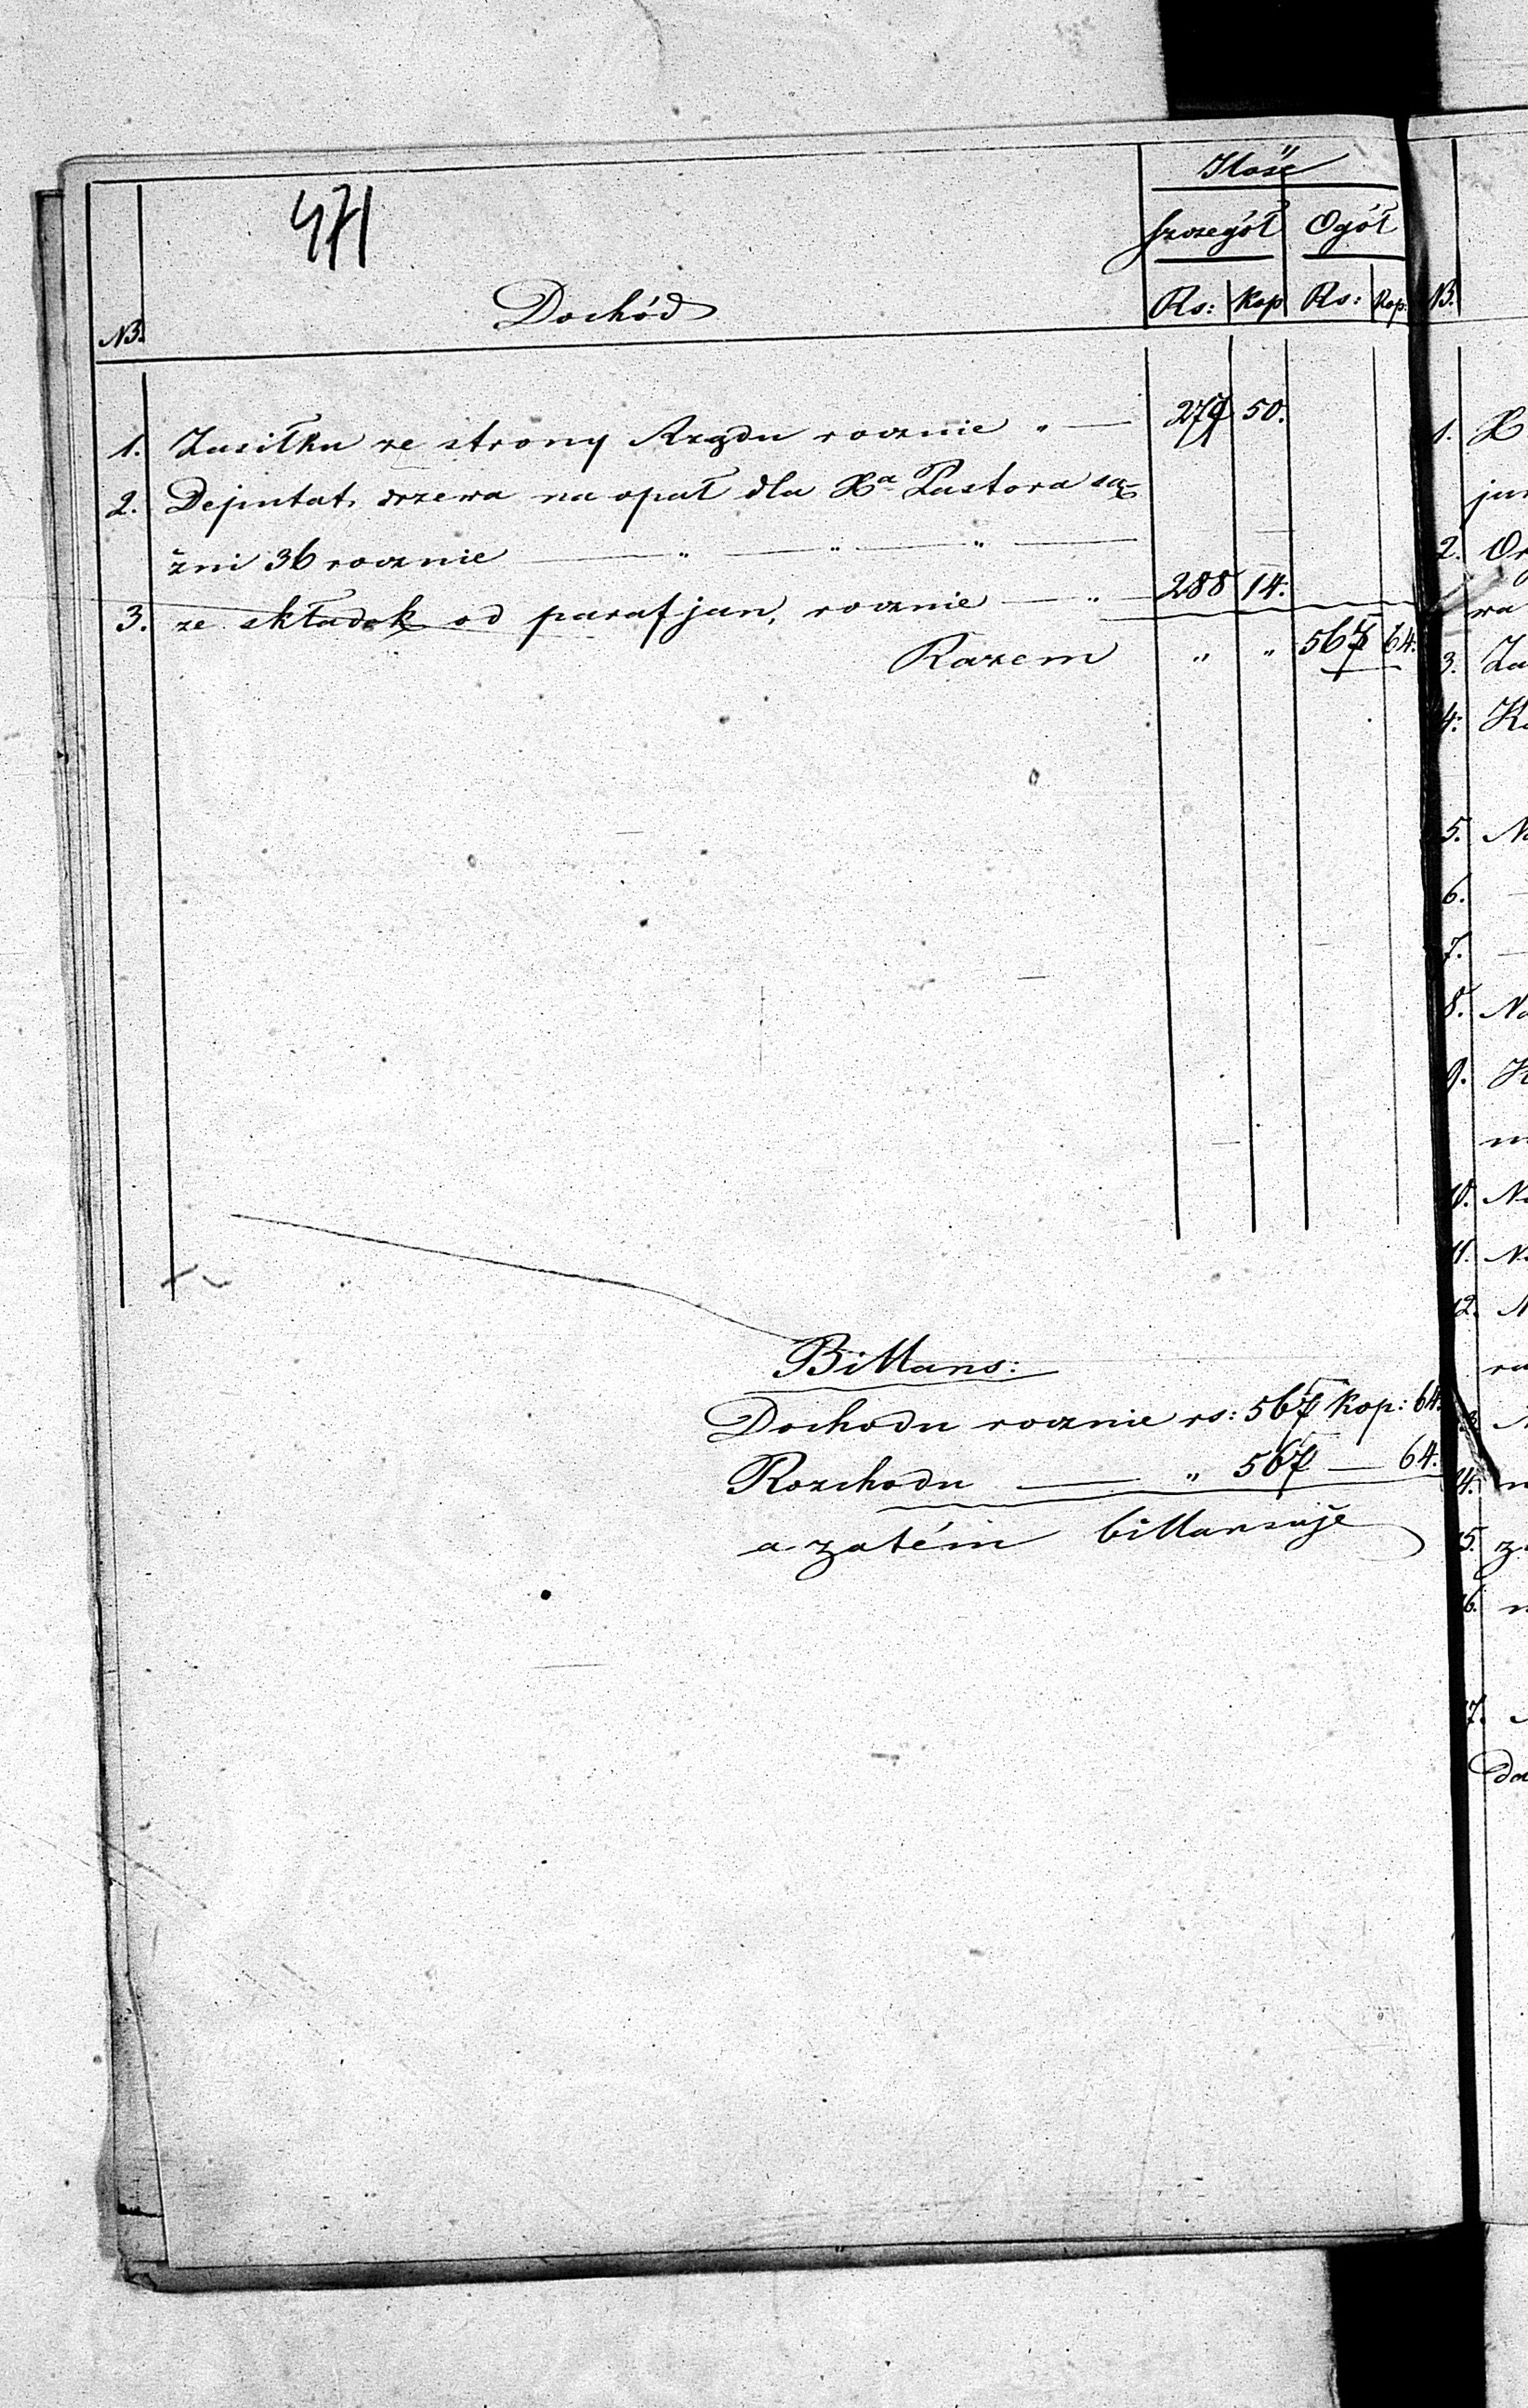 471
Ilość
szczegół Ogół
N3. Dochód Rs: Kop Rs: Kop:
1. Zasiłku ze strony Rządu rocznie „ — 279 50.
2. Deputat drzewa na opał dla Xa Pastora są-
żni 36 rocznie — „ — „ — „ —
3. ze składek od parafjan, rocznie — „ — 288 14.
Razem „ „ 567 64.
Billans:
Dochodu rocznie rs: 567 kop: 64.
Rozchodu — „ 567 — 64.
a zatém billansuje
N3.
1. X
2. Or
3. Za
4. Ko
5. Na
6.
7.
8. Na
9. K
10. Na
11. Na
12. N
14.
15. z
16.
17.